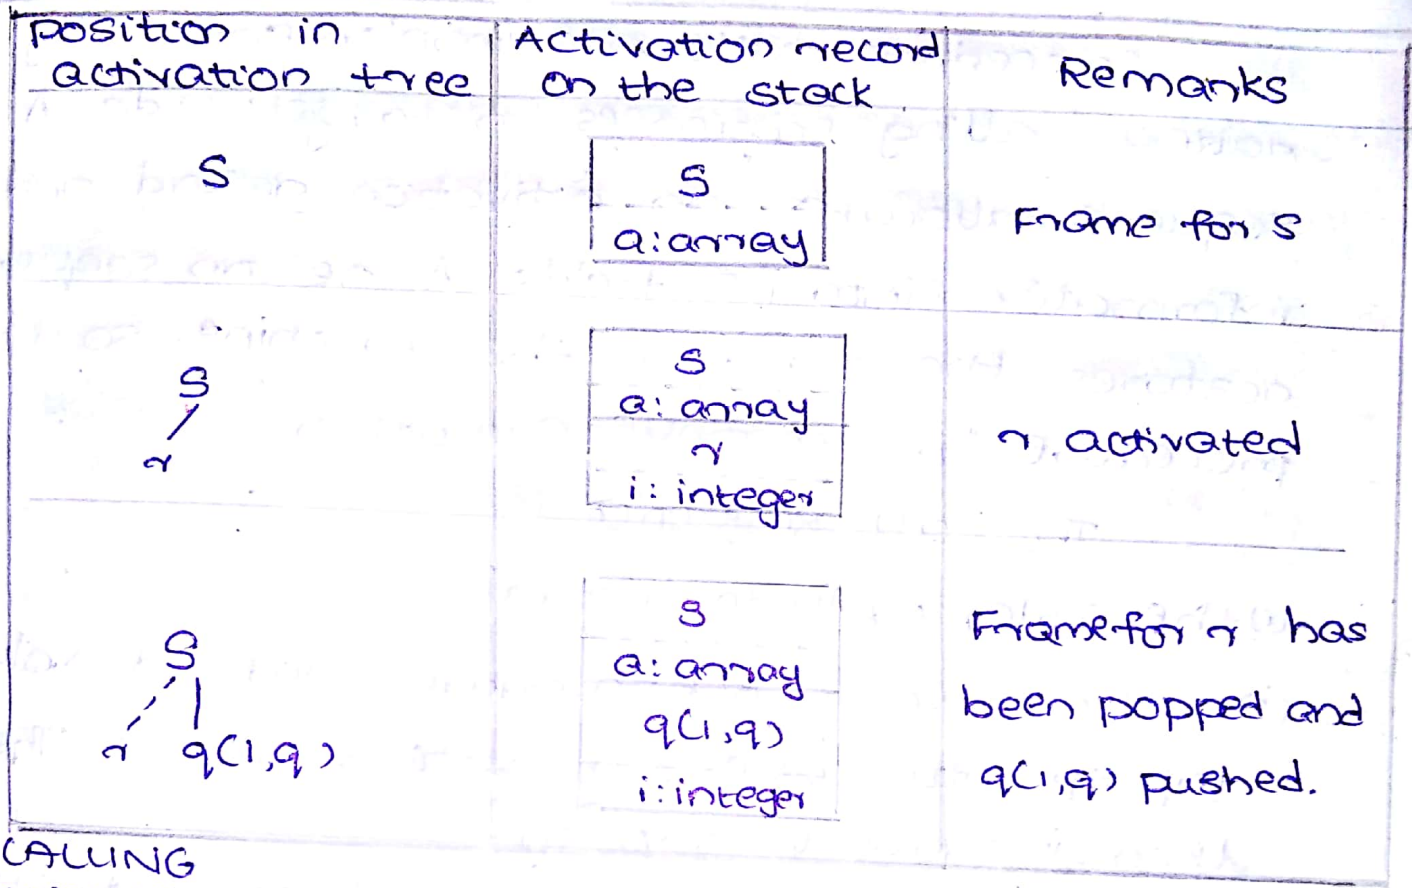 Position in
activation tree
Activation record
on the stack
Remarks
S
S
a: array
Frame for S
S
r
S
a: array
r
i: integer
r activated
S
r q(1,9)
S
a: array
q(1,9)
i: integer
Frame for r has
been popped and
q(1,9) pushed.
CALLING